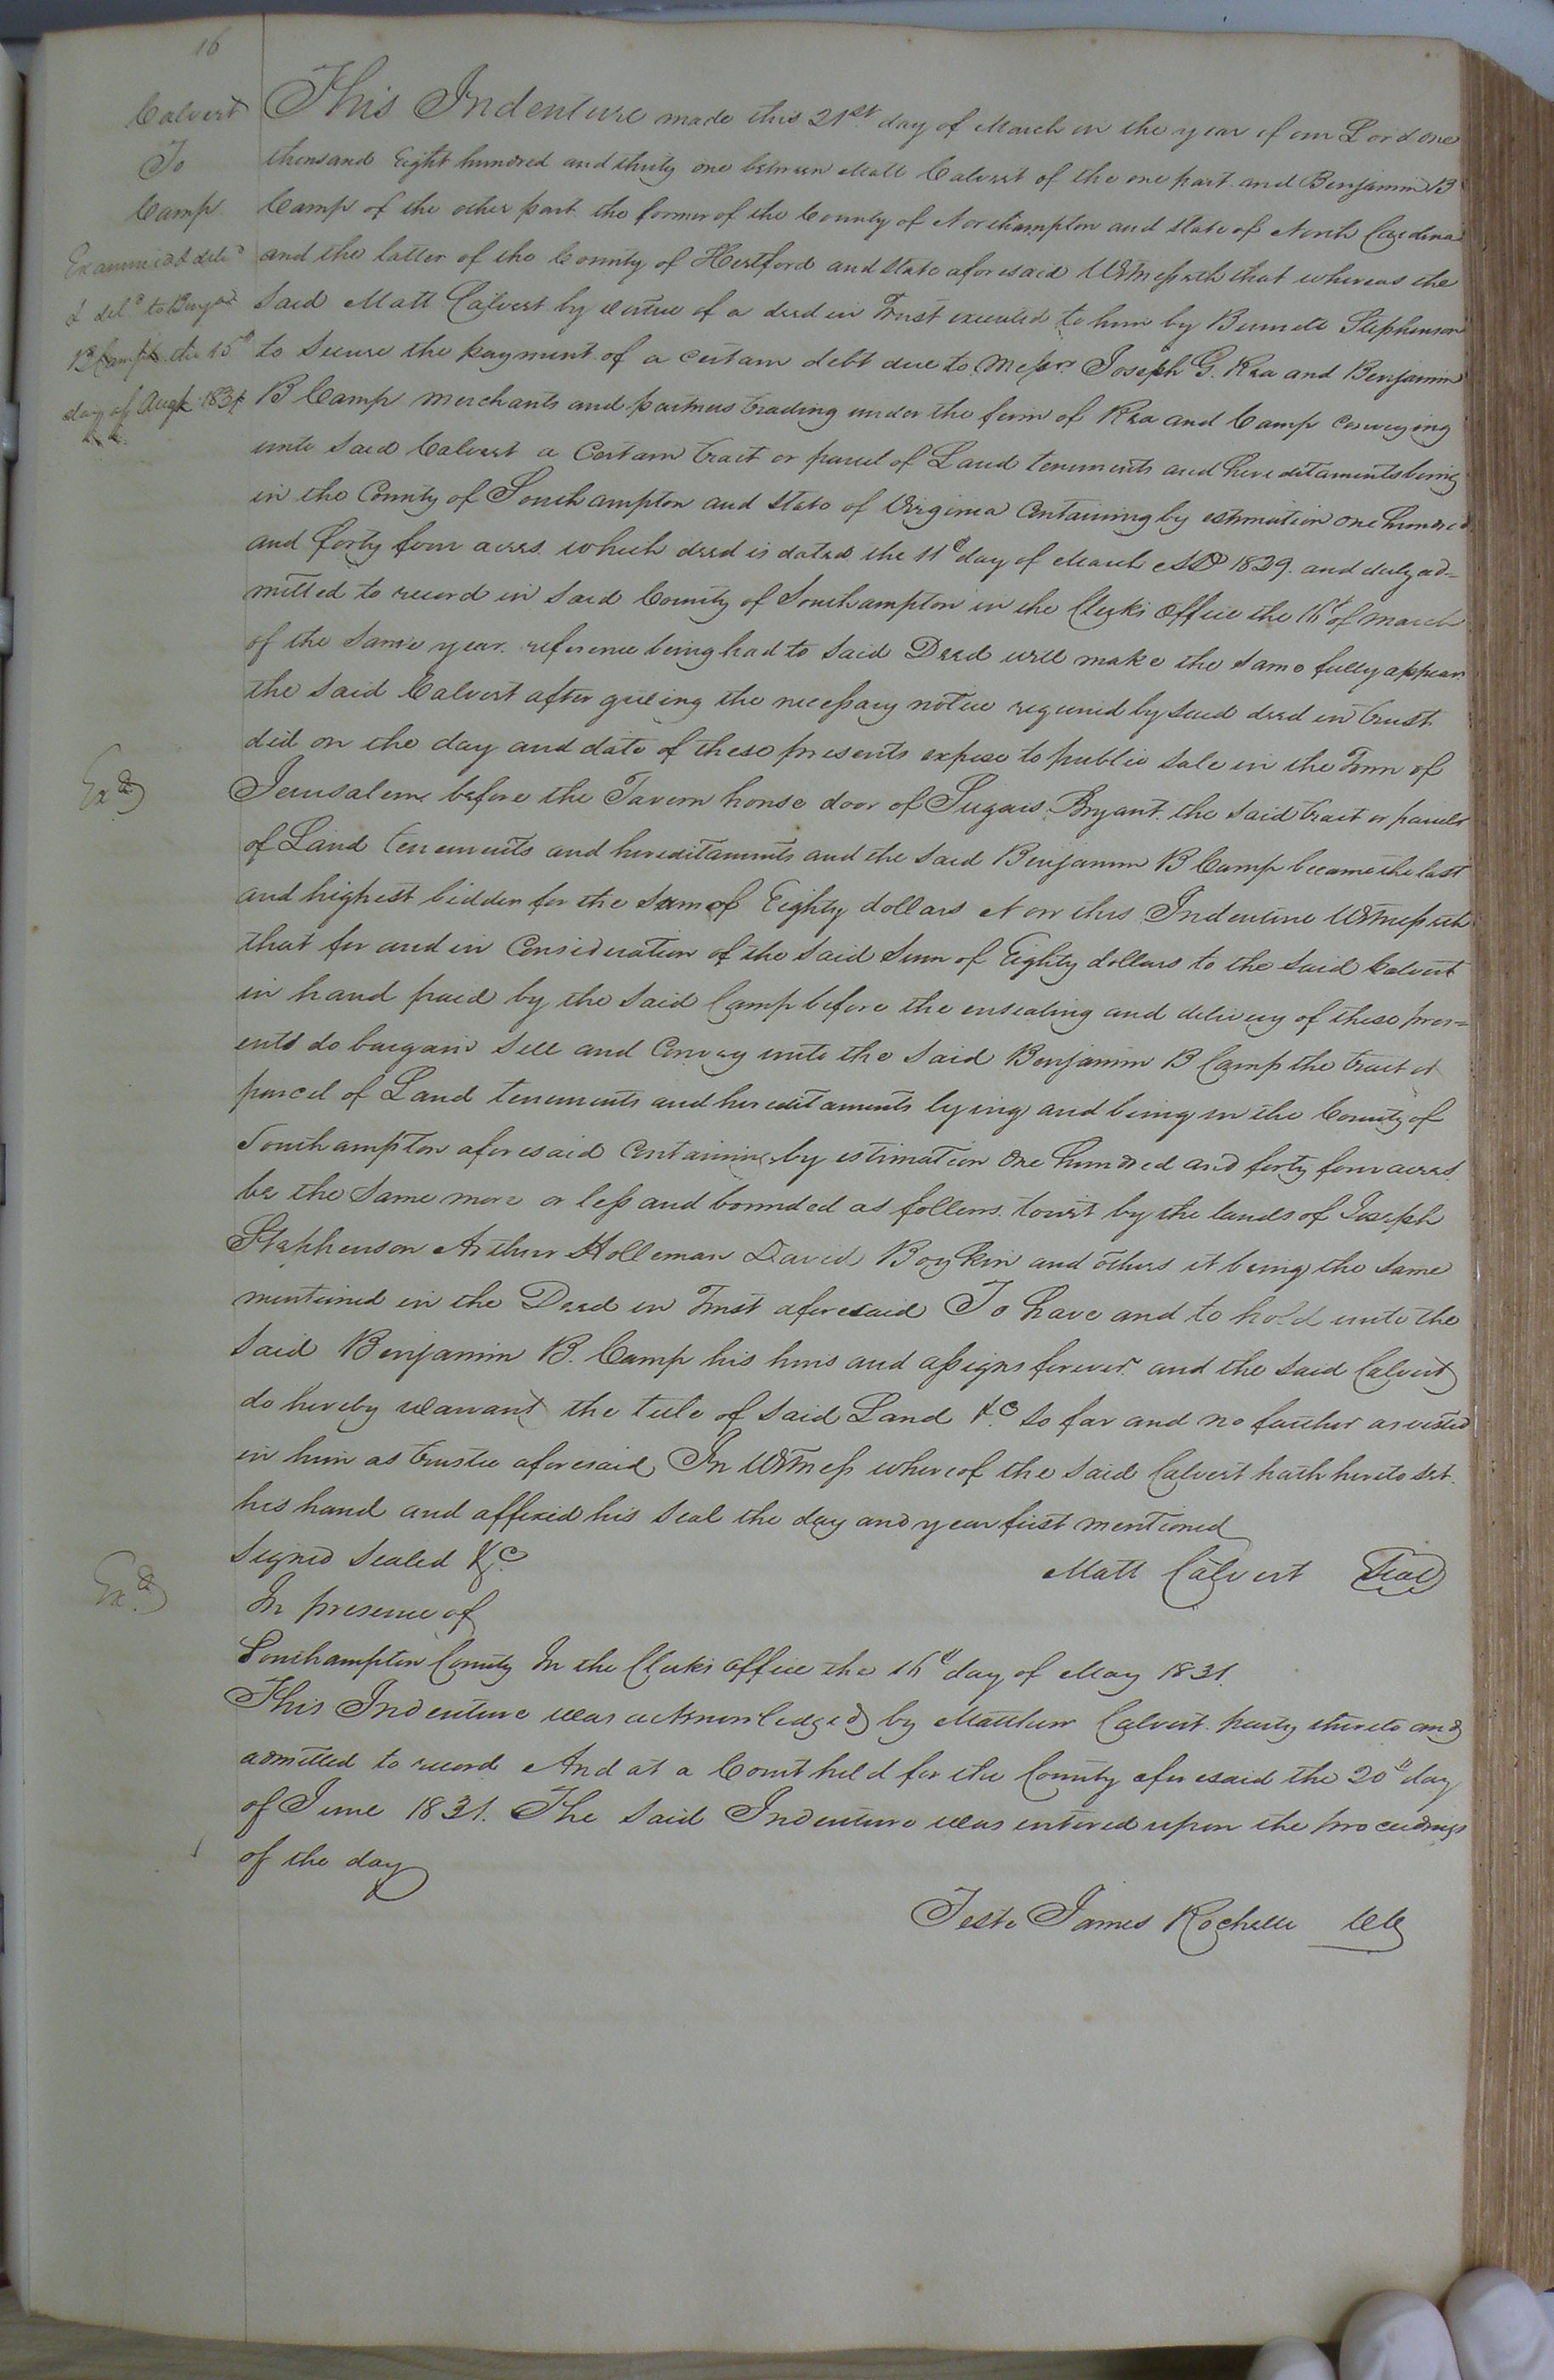 16
Calvert
To
Camp
Examined & deld
& deld to Benja
B Camp the 15th
day of Augt 1831
This Indenture made this 21st day of March in the year of our Lord one
thousand Eight hundred and thirty one between Matt Calvert of the one part and Benjamin B
Camp of the other part the former of the County of Northampton and State of North Carolina
and the latter of the County of Hertford and State aforesaid Witnesseth that whereas the
said Matt Calvert by virtue of a deed in Trust executed to him by Stephenson
to secure the payment of a certain debt due to Messrs Joseph G. Rea and Benjamin
B Camp merchants and partners trading under the firm of Rea and Camp conveying
unto said Calvert a Certain tract or parcel of Land tenements and hereditaments being
in the County of Southampton and State of Virginia Containing by estimation one hundred
and forty four acres which deed is dated the 11th day of March AD 1829. and duly ad=
mitted to record in said County of Southampton in the Clerks Office the 16th of March
of the same year. reference being had to said Deed will make the same fully appear
the said Calvert after giveing the necessary notice required by said deed in trust
did on the day and date of these presents expose to public sale in the Town of
Exd
Jerusalem before the Tavern house door of Sugars Bryant. the said tract or parcel
of Land tenements and hereditaments and the said Benjamin B Camp became the last
and highest bidder for the sum of Eighty dollars Now this Indenture Witnesseth
that for and in Consideration of the said sum of Eighty dollars to the said Calvert
in hand paid by the said Camp before the ensealing and delivery of these pres=
ents do bargain sell and Convey unto the said Benjamin B Camp the tract or
parcel of Land tenements and hereditaments lying and being in the County of
Southampton aforesaid Containing by estimation one hundred and forty four acres
be the same more or less and bounded as follows. towit by the lands of Joseph
Stephenson Arthur Holleman David Boykin and others it being the same
mentioned in the Deed in Trust aforesaid To have and to hold unto the
said Benjamin B. Camp his heirs and assigns forever and the said Calvert
do hereby warrant the title of said Land &c so far and no farther as vested
in him as trustee aforesaid In Witness whereof the said Calvert hath hereto set
his hand and affixed his seal the day and year first mentioned
signed sealed &c Matt Calvert Seal
Exd
In presence of
Southampton County In the Clerks office the 16th day of May 1831.
This Indenture was acknowledged by Matthew Calvert party thereto and
admitted to record And at a Court held for the County aforesaid the 20th day
of June 1831. The said Indenture was entered upon the proceedings
of the day
Teste James Rochelle CC